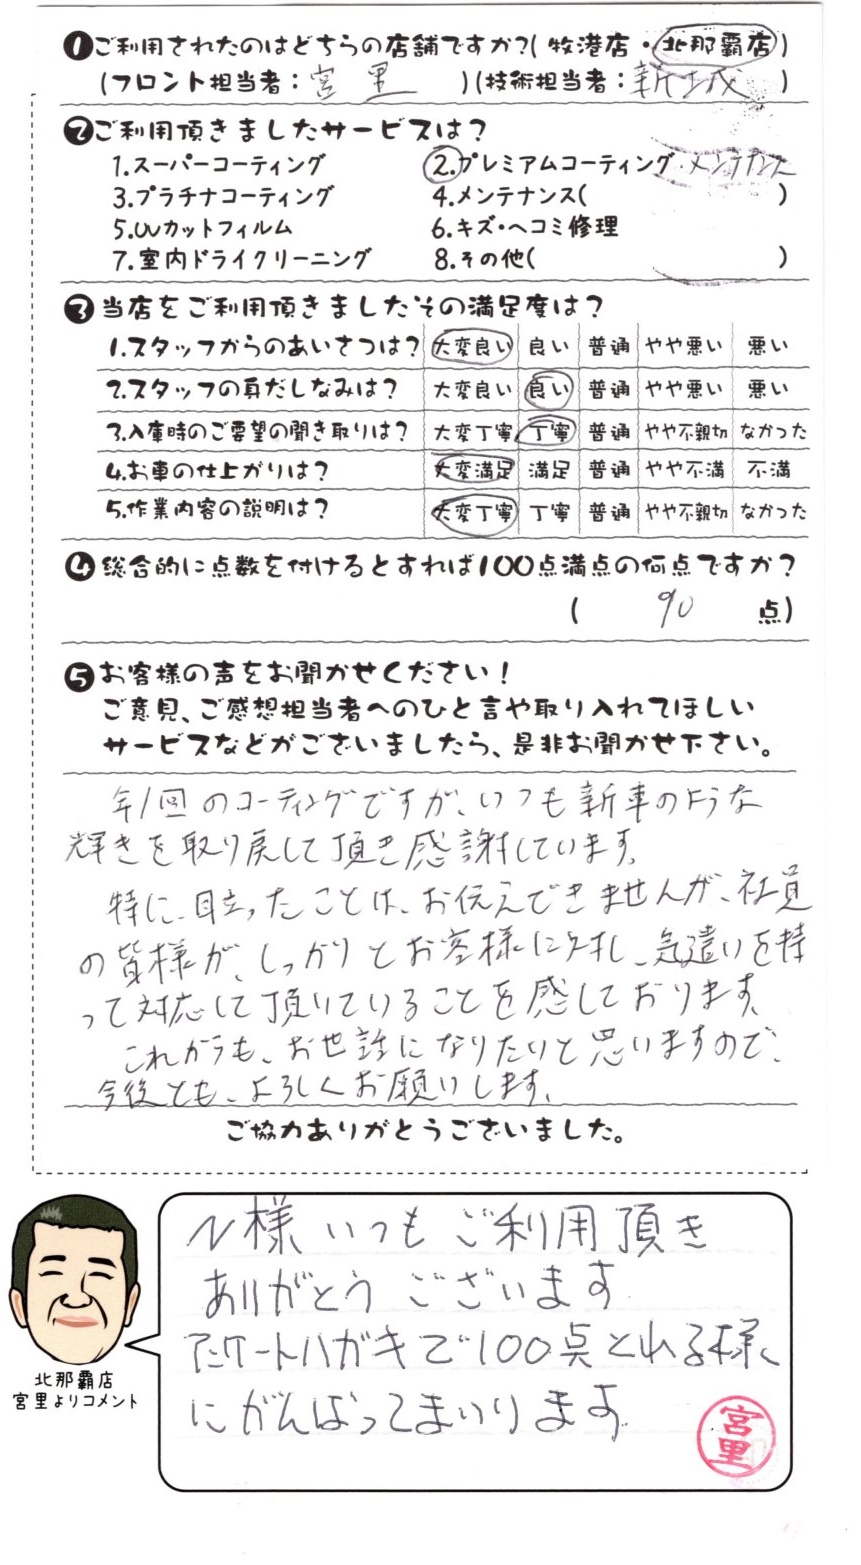 ❶ご利用されたのはどちらの店舗ですか?(牧港店・北那覇店)
(フロント担当者:宮里)(技術担当者:新城)
❷ご利用頂きましたサービスは?
1.スーパーコーティング 2.プレミアムコーティング・メンテナンス
3.プラチナコーティング 4.メンテナンス( )
5.UVカットフィルム 6.キズ・ヘコミ修理
7.室内ドライクリーニング 8.その他( )
❸当店をご利用頂きましたその満足度は?
1.スタッフからのあいさつは? 大変良い 良い 普通 やや悪い 悪い
2.スタッフの身だしなみは? 大変良い 良い 普通 やや悪い 悪い
3.入庫時のご要望の聞き取りは? 大変丁寧 丁寧 普通 やや不親切 なかった
4.お車の仕上がりは? 大変満足 満足 普通 やや不満 不満
5.作業内容の説明は? 大変丁寧 丁寧 普通 やや不親切 なかった
❹総合的に点数を付けるとすれば100点満点の何点ですか?
( 90 点)
❺お客様の声をお聞かせください!
ご意見、ご感想担当者へのひと言や取り入れてほしい
サービスなどがございましたら、是非お聞かせ下さい。
年1回のコーティングですが、いつも新車のような
輝きを取り戻して頂き感謝しています。
特に、目立ったことは、お伝えできませんが、社員
の皆様が、しっかりとお客様に対し、気遣いを持
って対応して頂いていることを感しております。
これからも、お世話になりたいと思いますので、
今後とも、よろしくお願いします。
ご協力ありがとうございました。
N様いつもご利用頂き
ありがとうございます
アンケートハガキで100点とれる様に
にがんばってまいります
宮里
北那覇店
宮里よりコメント